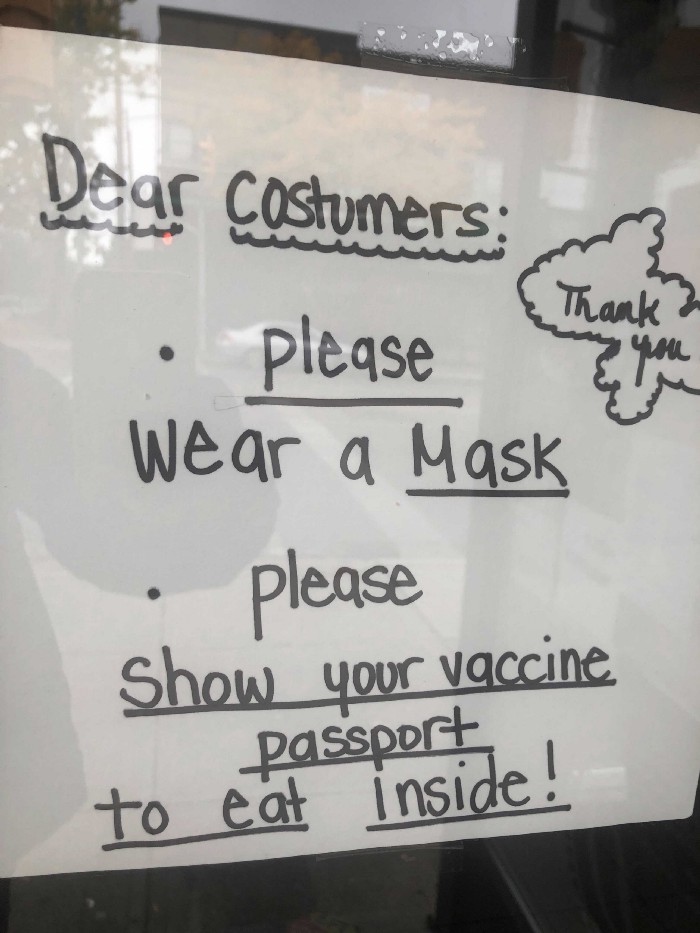 Dear Costumers:
Thank
you
• please
Wear a Mask
• please
Show your vaccine
passport
to eat inside!